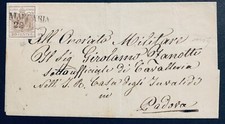 All'Onorato Militare
Il Sig Girolamo Zanotti
Sott'uffiziale di Cavalleria
Nell' I. R. Casa degli Invalidi
in
Padova